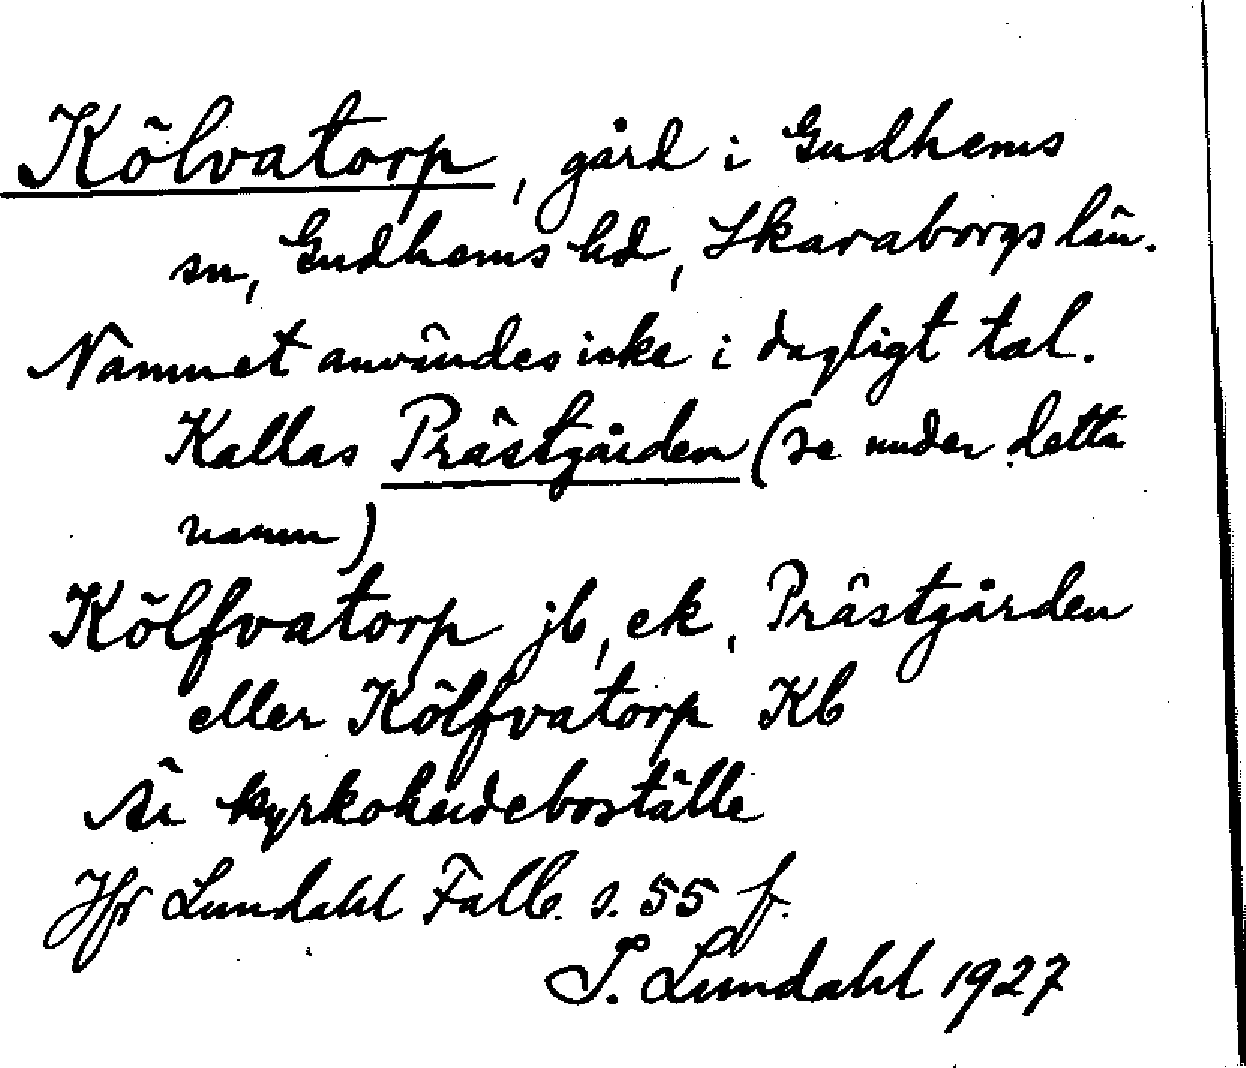 Kölvatorp, gård i Gudhems
sn, Gudhems hd, Skaraborgs län.
Namnet användes icke i dagligt tal.
Kallas Prästgården (se under detta
namn)
Kölfvatorp jb, ek, Prästgården
eller Kölfvatorp Kb
Är kyrkoherdeboställe
Jfr Lundahl Falb. s. 55 f.
I. Lundahl 1927